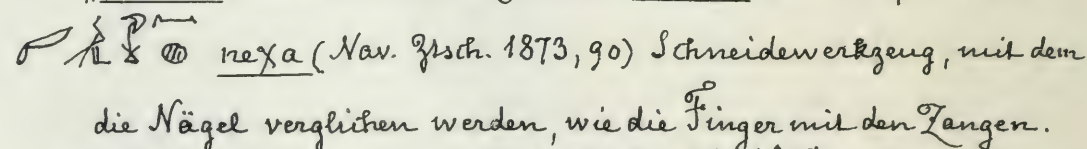 nexa (Nav. Ztsch. 1873, 90) Schneidewerkzeug, mit dem
die Nägel verglichen werden, wie die Finger mit den Zangen.